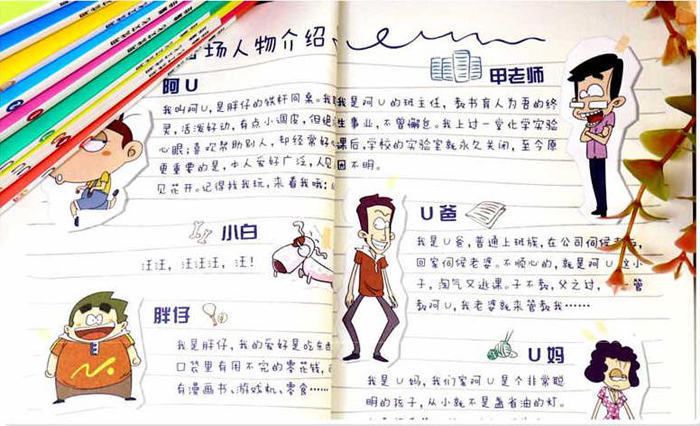 场人物介绍
阿U
我叫阿U,是胖仔的铁杆同桌。我
灵,活泼好动,有点小调皮,但绝
心眼;喜欢帮助别人,却经常好心
更重要的是,本人爱好广泛,人见
见花开。记得找我玩,来看我哦
小白
汪汪,汪汪汪,汪!
胖仔
我是胖仔,我的爱好是吃东西
口袋里有用不完的零花钱,
有漫画书、游戏机、零食……
甲老师
我是阿U的班主任,教书育人为吾的终
生事业,不曾懈怠。我上过一堂化学实验
课后,学校的实验室就永久关闭,至今原
因不明。
U爸
我是U爸,普通上班族,在公司伺候
回家伺候老婆。不顺心的,就是阿U这小
子,淘气又逃课。子不教,父之过,一管
教阿U,我老婆就来管教我……
U妈
我是U妈,我们家阿U是个非常聪
明的孩子,从小就不是盏省油的灯。